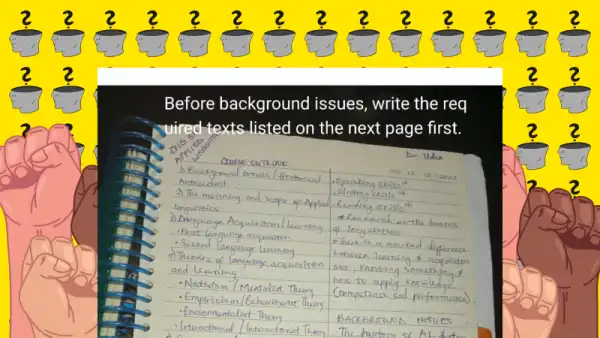 Before background issues, write the req
uired texts listed on the next page first.
APPLIED
COURSE OUTLINE
1) Background Issues / Historical
Antecedent
2) The meaning and scope of Applied
Linguistics
3) Language Acquisition / Learning
• First language acquisition
• Second language learning
Theories of language acquisition
and learning
• Nativism / Mentalist Theory
• Empiricism / Behaviourist Theory
• Environmentalist Theory
• Interactional / Interactionist Theory
• Speaking skills
• Writing skills
• Reading skills
* Research on the
of linguistics
* There is a marked difference
between learning & acquisition
Knowing something &
how to apply knowledge
(competence and performance)
BACKGROUND ISSUES
The history of AL